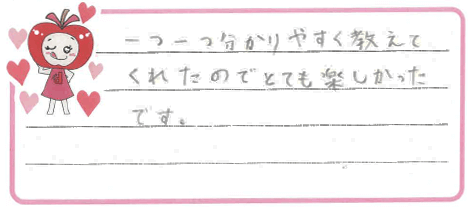 一つ一つ分かりやすく教えて
くれたのでとても楽しかった
です。